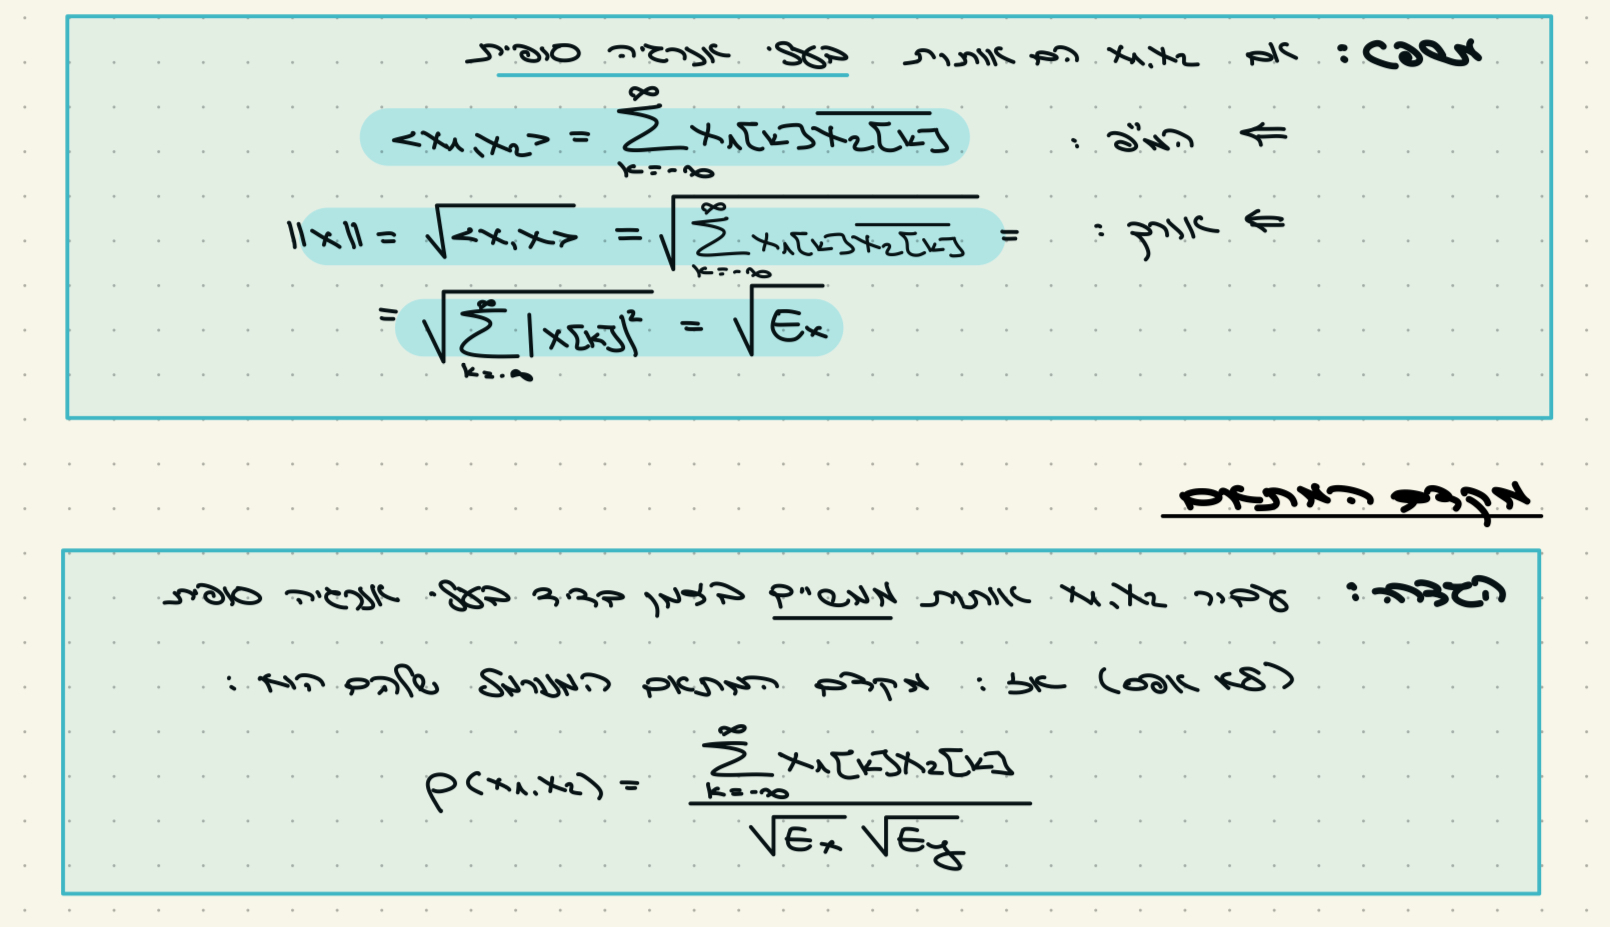 מסכם: אם x₁,x₂ הם אותות בעלי אנרגיה סופית
⇐ המ"פ : <x₁,x₂> = \sum_{k=-∞}^{∞} x₁[k]\overline{x₂[k]}
⇐ אורך : ||x|| = \sqrt{<x,x>} = \sqrt{\sum_{k=-∞}^{∞} x₁[k]\overline{x₂[k]}} =
= \sqrt{\sum_{k=-∞}^{∞} |x[k]|²} = \sqrt{E_x}
מקדם המתאם
הגדרה: עבור x₁,x₂ אותות ממשיים בזמן בדיד בעלי אנרגיה סופית
(לא אפס) אז : מקדם המתאם המנורמל שלהם הוא :
ρ(x₁,x₂) = \frac{\sum_{k=-∞}^{∞} x₁[k]x₂[k]}{\sqrt{E_x} \sqrt{E_y}}